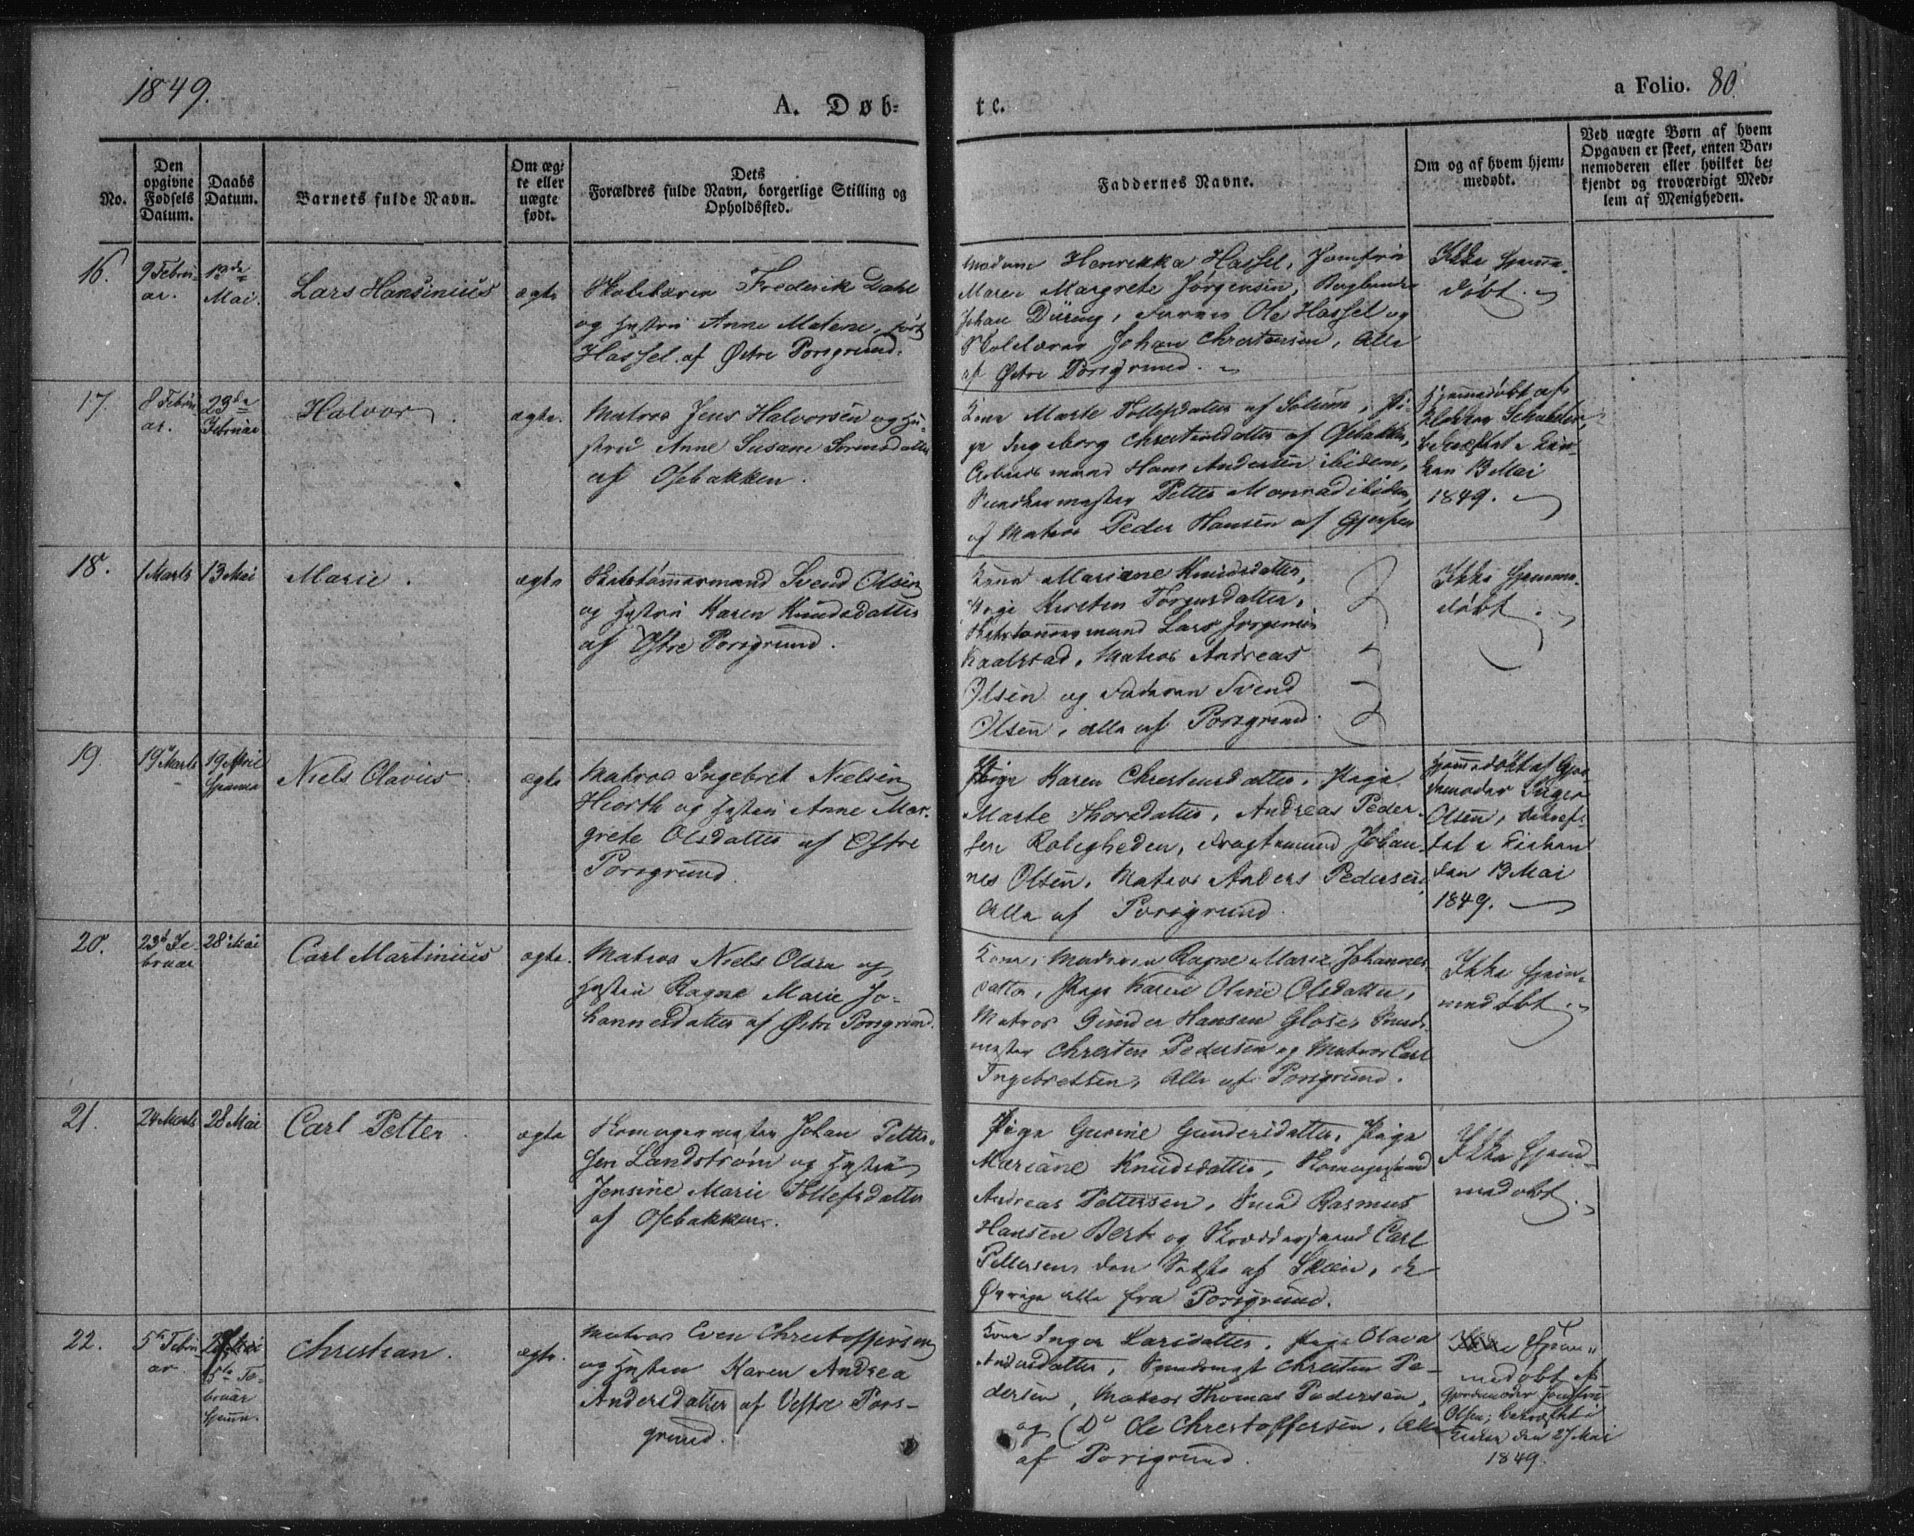 1849.
A. Døb-
te.
a Folio. 80.
No.
Den
opgivne
Fødsels
Datum.
Daabs
Datum.
Barnets fulde Navn.
Om æg-
te eller
uægte
født.
Dets
Forældres fulde Navn, borgerlige Stilling og
Opholdssted.
Faddernes Navne.
Om og af hvem hjem-
medøbt.
Ved uægte Børn af hvem
Opgaven er skeet, enten Bar-
nemoderen eller hvilket be-
kjendt og troværdigt Med-
lem af Menigheden.
16.
9 Febru-
ar.
13de
Mai.
Lars Hansinius
ægte
Skolelærer Frederik Dahl
og Hustru Anne Matene, født
Hassel. af Østre Porsgrund.
Madame Henrikka Hassel, Jomfru
Maren Margrete Jørgensen,
Johan Düring, Ole Hassel og
Skolelærer Johan Christensen, Alle
af Østre Porsgrund.
Ikke hjemme-
døbt.
17.
8 Febru-
ar.
23de
Februar
Halvor
ægte.
Matros Jens Halvorsen og Hu-
stru Anne Susane Sørensdatter
af Osebakken.
Kone Marte Tollefsdatter af Solum, Pi-
ge Ingeborg Christensdatter af Osebakken,
Arbeidsmand Hans Andersen ibidem,
Petter Monrad ibidem,
og Matros Peder Hansen af Gjerpen
Hjemmedøbt af
Klokker
bekræftet i Kir-
ken 13 Mai
1849.
18.
1 Marts
13 Mai
Marie.
ægte
Skibstømmermand Svend Olsen
og Hustru Karen Knudsdatter
af Østre Porsgrund.
Kone Mariane Knudsdatter,
Pige Kirsten
Skibstømmermand Lars Jørgensen
Kaalstad, Matros Andreas
Olsen og Faderen Svend
Olsen, alle af Porsgrund.
Ikke hjemme-
døbt.
19.
19 Marts
19 April
hjemme
Niels Olavius
ægte
Matros Ingebret Nielsen
Hiorth og Hustru Anne Mar-
grete Olsdatter af Østre
Porsgrund.
Pige Karen Christensdatter, Pige
Marte Thorsdatter, Andreas Peder-
sen Roligheden, Johan-
nes Olsen, Matros Anders Pedersen.
Alle af Porsgrund.
Hjemmedøbt af Gjor-
demoder Inger
Olsen, bekræf-
tet i Kirken
den 13 Mai
1849.
20.
23d Fe-
bruar
28 Mai
Carl Martinius
ægte.
Matros Niels Olsen og
Hustru Ragne Marie Jo-
hannesdatter af Østre Porsgrund.
Kone, Moderen Ragne Marie Johannes-
datter, Pige Karen Oline Olsdatter,
Matros Gunder Hansen Gloser
Christen Pedersen og Matros Carl
Ingebretsen, Alle af Porsgrund.
Ikke hjem-
medøbt.
21.
24 Marts
28 Mai
Carl Petter
ægte
Johan Petter-
sen Landstrøm og Hustru
Jensine Marie Tollefsdatter
af Osebakken.
Pige Gurine Gundersdatter, Pige
Mariane Knudsdatter,
Andreas Pettersen, Smed Rasmus
Hansen Berk og Skræddersvend Carl
Pettersen, den Sidste af Skien, de
Øvrige alle fra Porsgrund.
Ikke hjem-
medøbt.
22.
5te Febru-
ar
5te Fe-
bruar
hjem.
Christian.
ægte.
Matros Even Christoffersen
og Hustru Karen Andrea
Andersdatter af Vestre Pors-
grund.
Kone Inger Larsdatter, Pige Olava
Andersdatter, Christen Pe-
dersen, Matros Thomas Pedersen,
og Do Ole Christoffersen, Alle
af Porsgrund.
Hjem-
medøbt af
Gjordemoder Jomfru
Olsen, bekræftet i
Kirken den 27 Mai
1849.